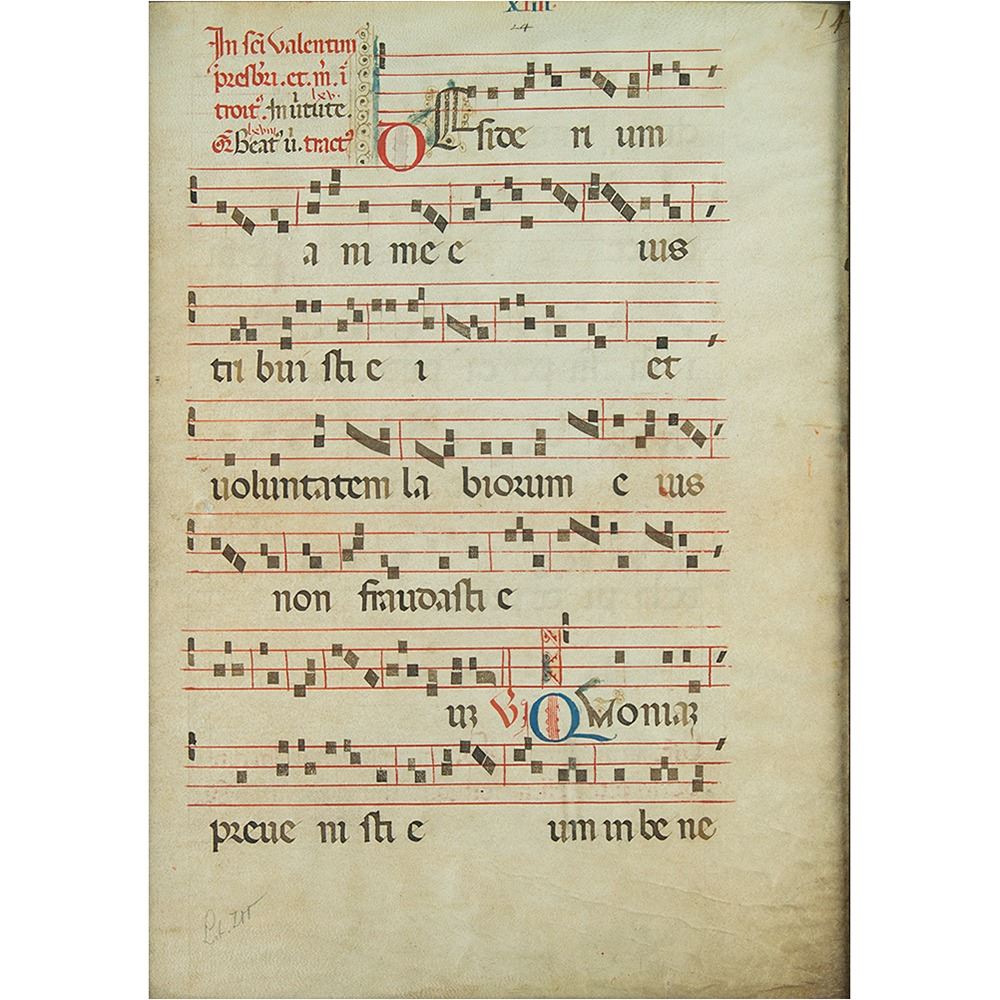 XIIII
14
In sci valentini
presbri. et. m. i
troit9. In uitute.
lxv.
lxviii
GR Beat9 ii. tract9
DEside ri um
a ni me e ius
tri bui sti e i et
uoluntatem la biorum e ius
non fraudasti e
um V Quoniam
preue ni sti e um in be ne